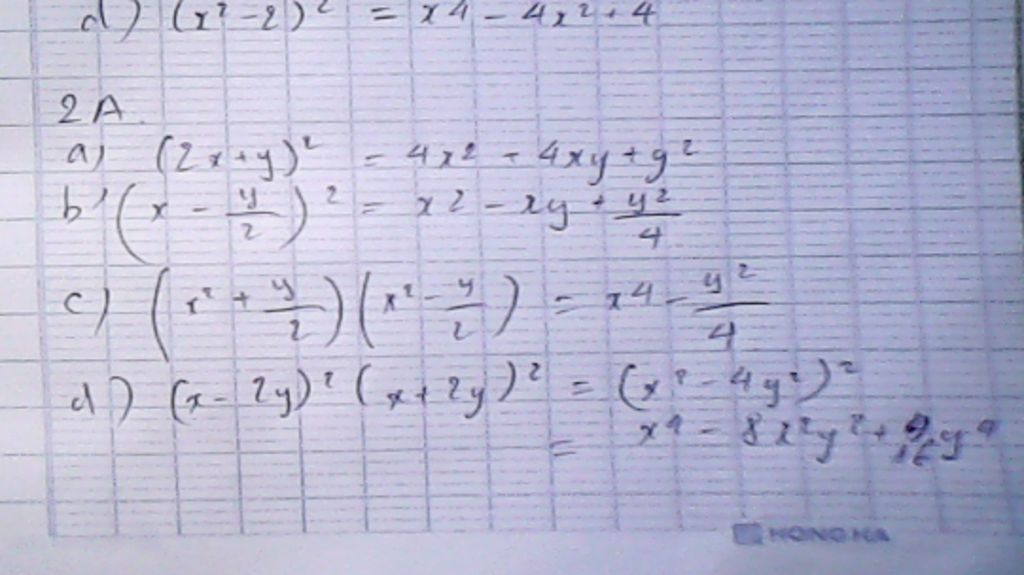 d) (x² - 2)² = x4 - 4x² + 4
2A.
a) (2x+y)² = 4x2 + 4xy + y²
b) (x - y/2)² = x2 - xy + y2/4
c) (x² + y/2)(x² - y/2) = x4 - y²/4
d) (x - 2y)² (x + 2y)² = (x² - 4y²)²
= x4 - 8x²y² + 16y4
HONGHA